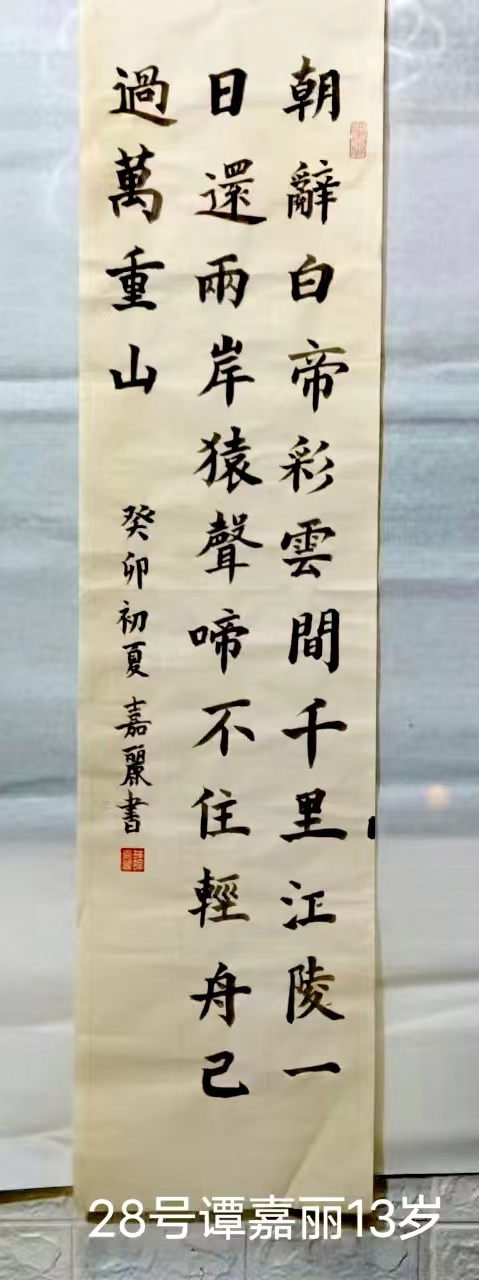 朝辭白帝彩雲間千里江陵一
日還兩岸猿聲啼不住輕舟已
過萬重山
癸卯初夏嘉麗書
28号谭嘉丽13岁